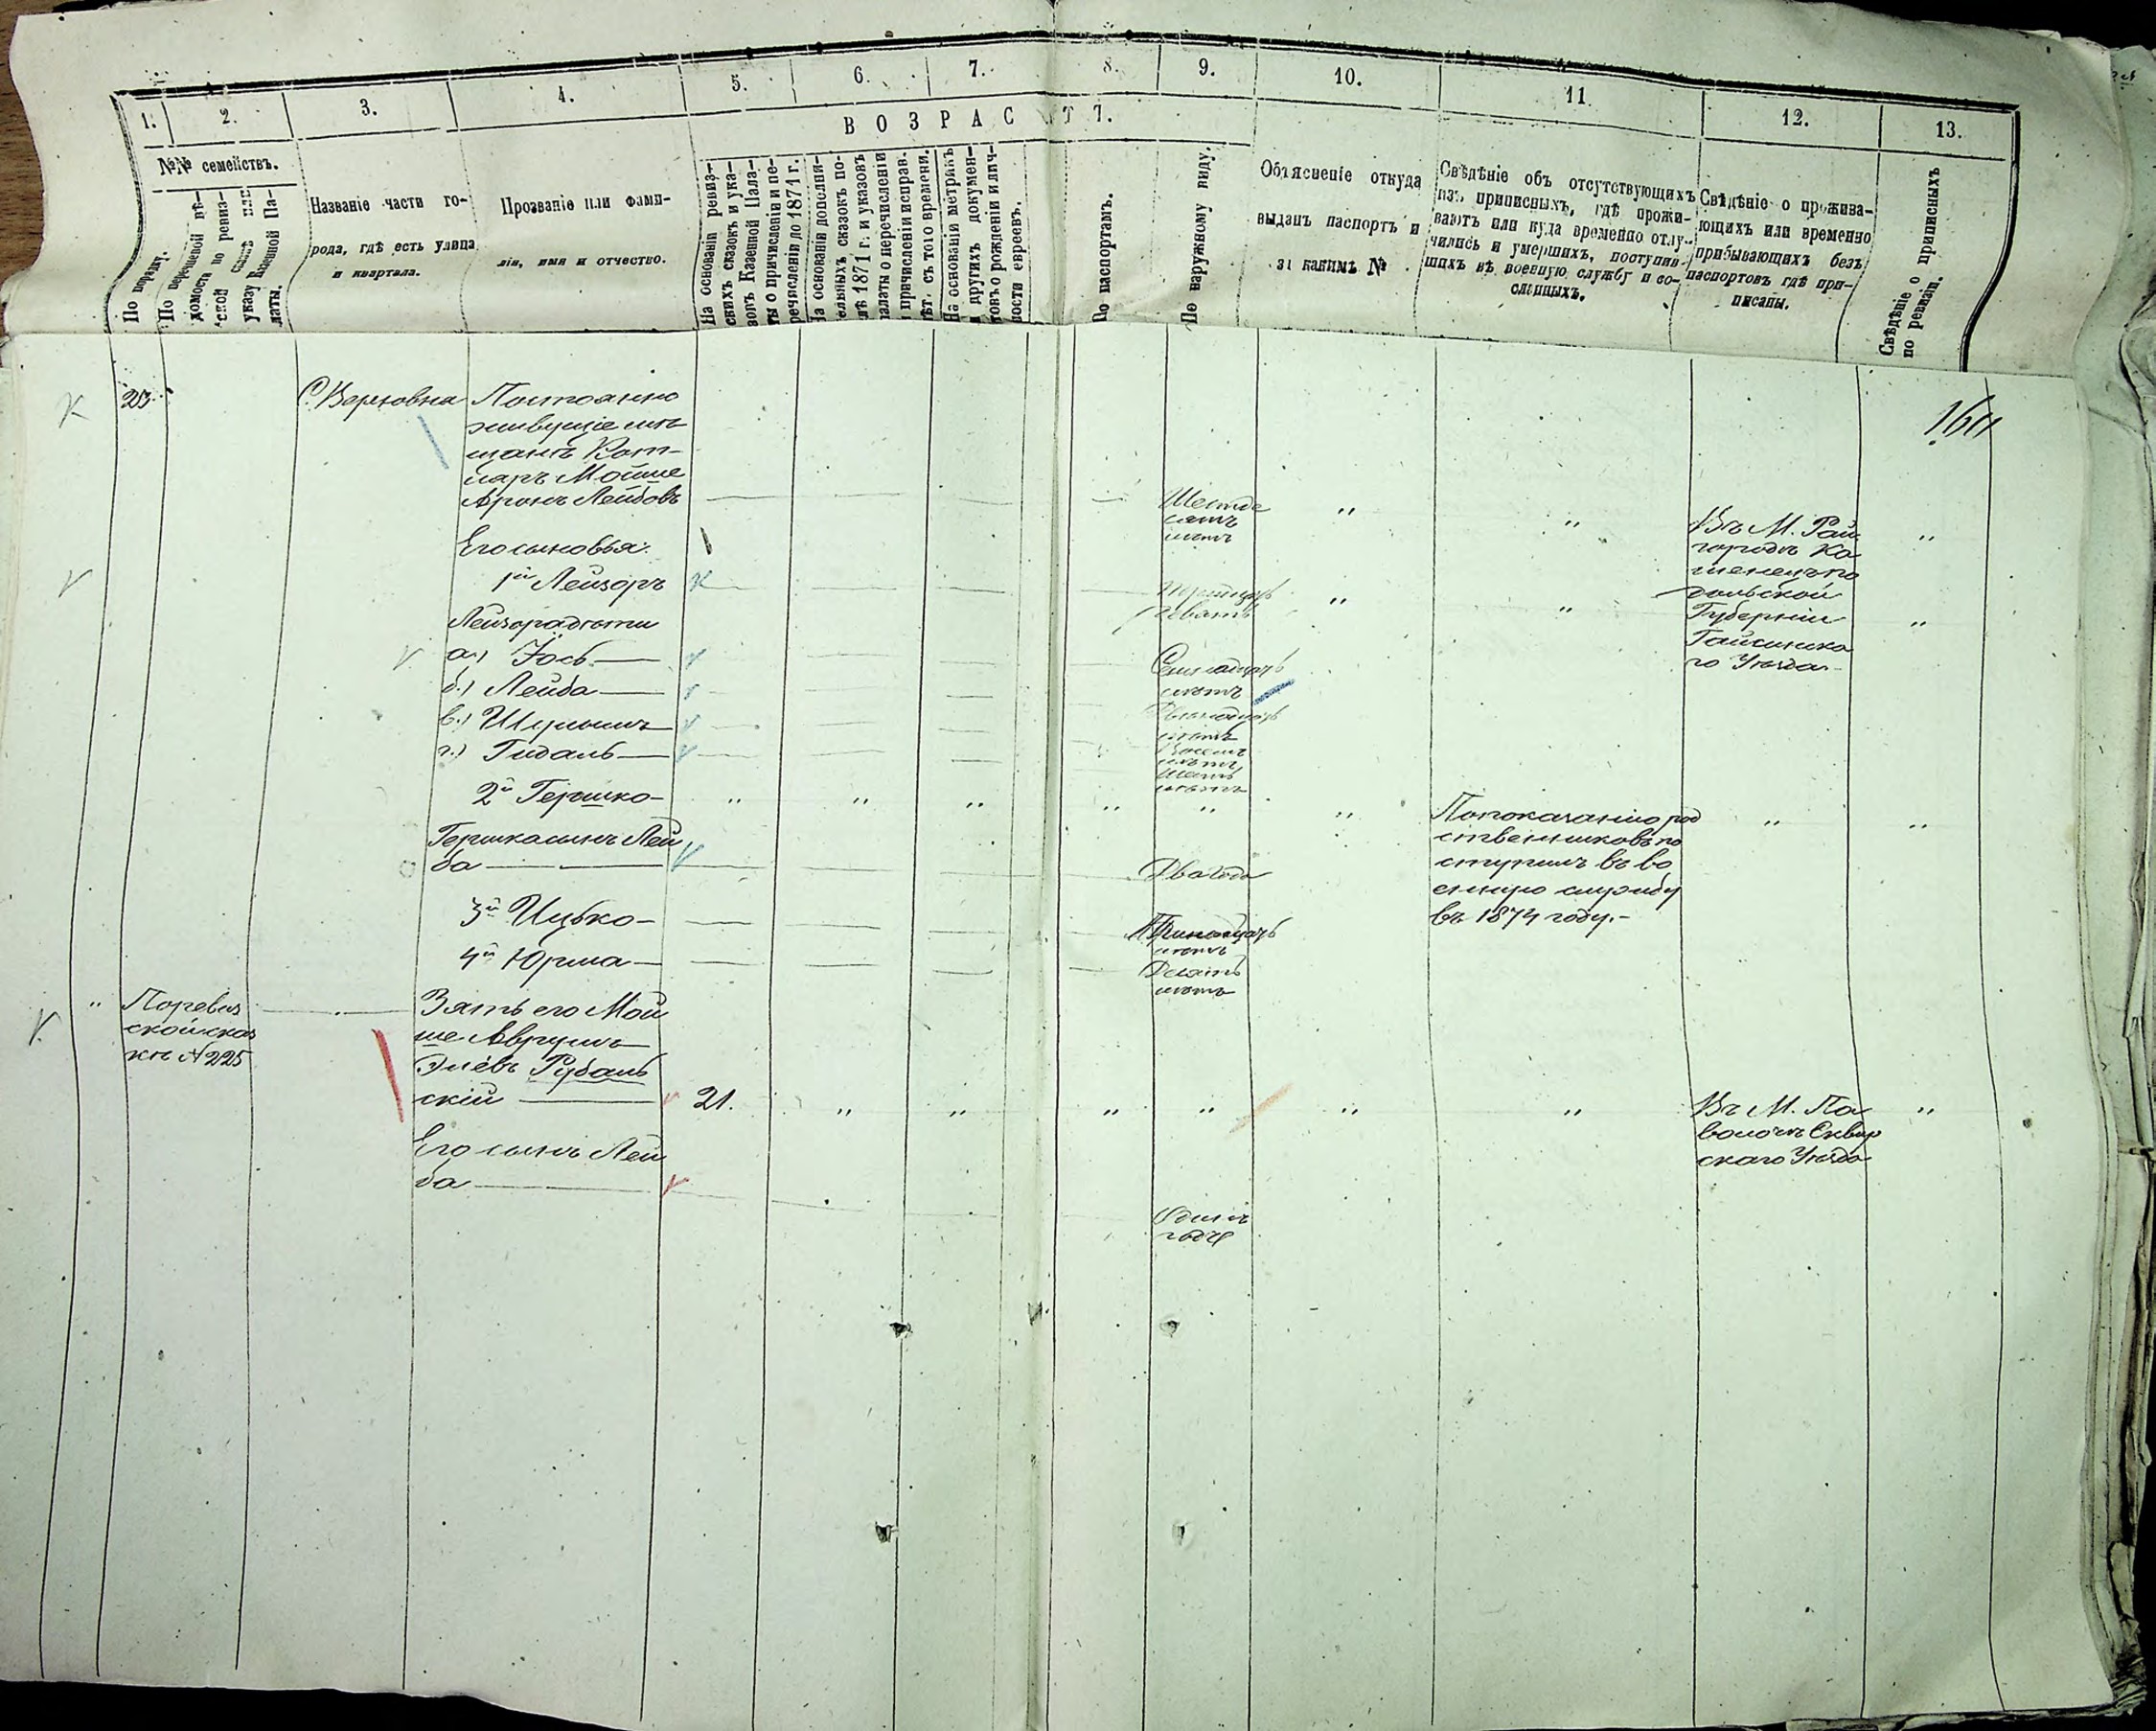 1. 2. 3. 4. 5. 6. 7. 8. 9. 10. 11. 12. 13.
№№ семействъ.
ВОЗРАСТЪ.
По порядку.
По перечневой вѣ-
домости по ревиз-
ской сказкѣ или
указу Казенной Па-
латы.
Названіе части го-
рода, гдѣ есть улица
и квартала.
Прозваніе или фами-
лія, имя и отчество.
На основаніи ревиз-
скихъ сказокъ и ука-
зовъ Казенной Пала-
ты о причисленіи и пе-
речисленіи до 1871 г.
На основаніи дополни-
тельныхъ сказокъ по-
слѣ 1871 г. и указовъ
палаты о перечисленіи
и причисленіи исправ.
лѣт. съ того времени.
На основаніи метрикъ
и другихъ докумен-
товъ о рожденіи и лич-
ности евреевъ.
По паспортамъ.
По наружному виду.
Объясненіе откуда
выданъ паспортъ и
за какимъ №
Свѣдѣніе объ отсутствующихъ
изъ приписныхъ, гдѣ прожи-
ваютъ или куда временно отлу-
чились и умершихъ, поступив-
шихъ въ военную службу и со-
сланныхъ.
Свѣдѣніе о прожива-
ющихъ или временно
прибывающихъ безъ
паспортовъ гдѣ при-
писаны.
Свѣдѣніе о приписныхъ
по ревизіи.
С. Верховна
Постоянно
живущіе мѣ
щане Кот-
ляръ Мошше
Аронъ Лейбовъ
Шестьде
сятъ
лѣтъ
Въ М. Рай
городѣ Ка
менецъ по
дольской
Губерніи
Гайсинска
го Уѣзда.
Его сыновья:
1й Лейзоръ
Тридцать
девять
Лейзора дѣти
а.) Іось
Семнадцать
лѣтъ
б.) Лейба
Двѣнадцать
лѣтъ
в.) Шулымъ
Восемь
лѣтъ
г.) Гидаль
Шесть
лѣтъ
2й Гершко
По показанію род
ственниковъ по
ступилъ въ во
енную службу
въ 1874 году.-
Гершка сынъ Лей
ба
Два года
3й Ицько
лѣтъ
4й Юрма
Десять
лѣтъ
По ревиз
ской сказ
кѣ №225
Зять его Мой
ше Аврумъ
Элевъ Рубаль
скій
21.
Въ М. Па
волочѣ Сквир
скаго Уѣзда
Его сынъ Лей
ба
Одинъ
годъ